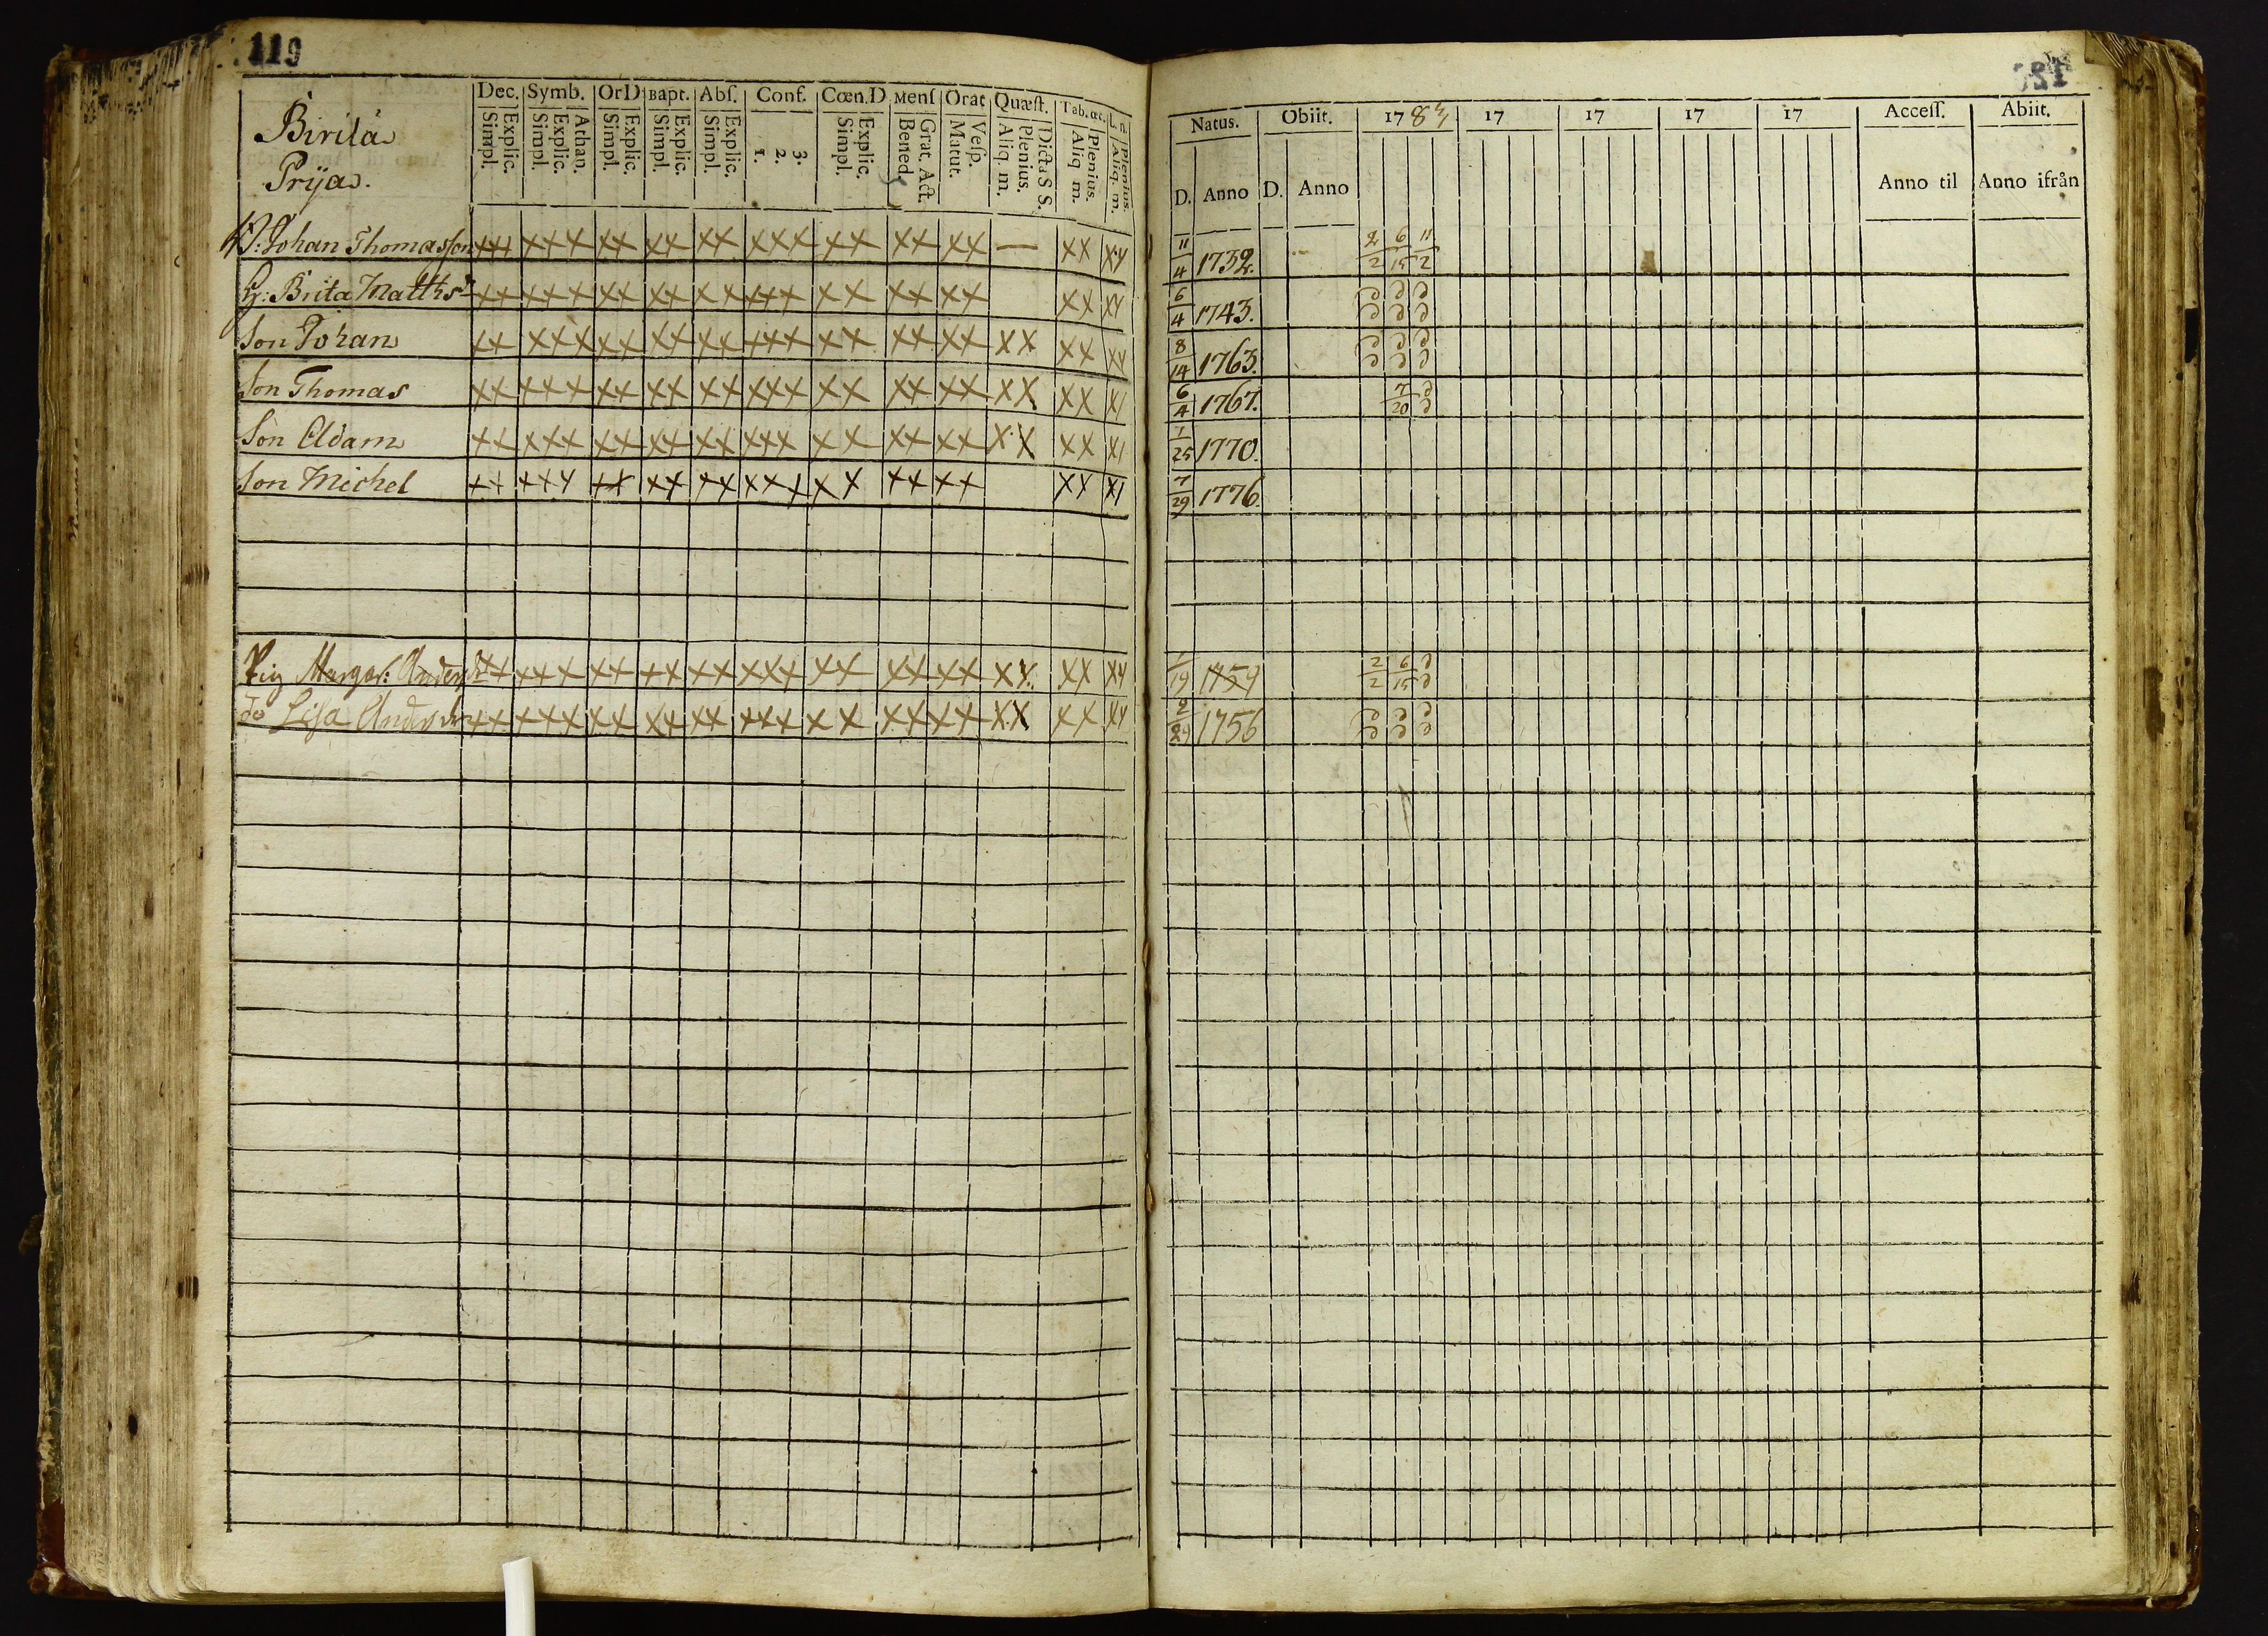 119
Birilä
Prÿa.
Dec. Symb. OrD Bapt. Abſ. Conf. Cœn.D Menſ Orat Quæſt. Tab. œc. L. n.
Simpl. Explic. Simpl. Explic. Athan. Simpl. Explic. Simpl. Explic. Simpl. Explic. 1. 2. 3. Simpl. Explic. Bened. Grat. Act. Matut. Veſp. Aliq. m. Plenius. Dicta S S. Aliq. m. Plenius. Aliq. m. Plenius.
Johan Thomasson xxx xxx xx xx xx xxx xx xx xx — xx xy
Brita Matths xx xxx xx xx xx xxx xx xx xx xx xy
Son Johan xx xxx xx xx xx xxx xx xx xx xx xx xy
Son Thomas xx xxx xx xx xx xxx xx xx xx xx xx x1
Son Adam xx xxx xx xx xx xxx xx xx xx xx xx x1
Son Michel xx xxx xx xx xx xxx xx xx xx xx x1
Pig Margar: Andersdr xx xxx xx xx xx xxx xx xx xx xx xx xy
do Lisa Andersdr xx xxx xx xx xx xxx xx xx xx xx xx xy
Natus. Obiit. 1783 17 17 17 17 Acceſſ. Abiit.
D. Anno D. Anno Anno til Anno ifrån
11/4 1732. 2/2 6/15 11/2
6/4 1743.
8/14 1763.
6/4 1767. 7/20
1/25 1770.
7/29 1776.
1/19 1759 2/2 6/15
2/24 1756